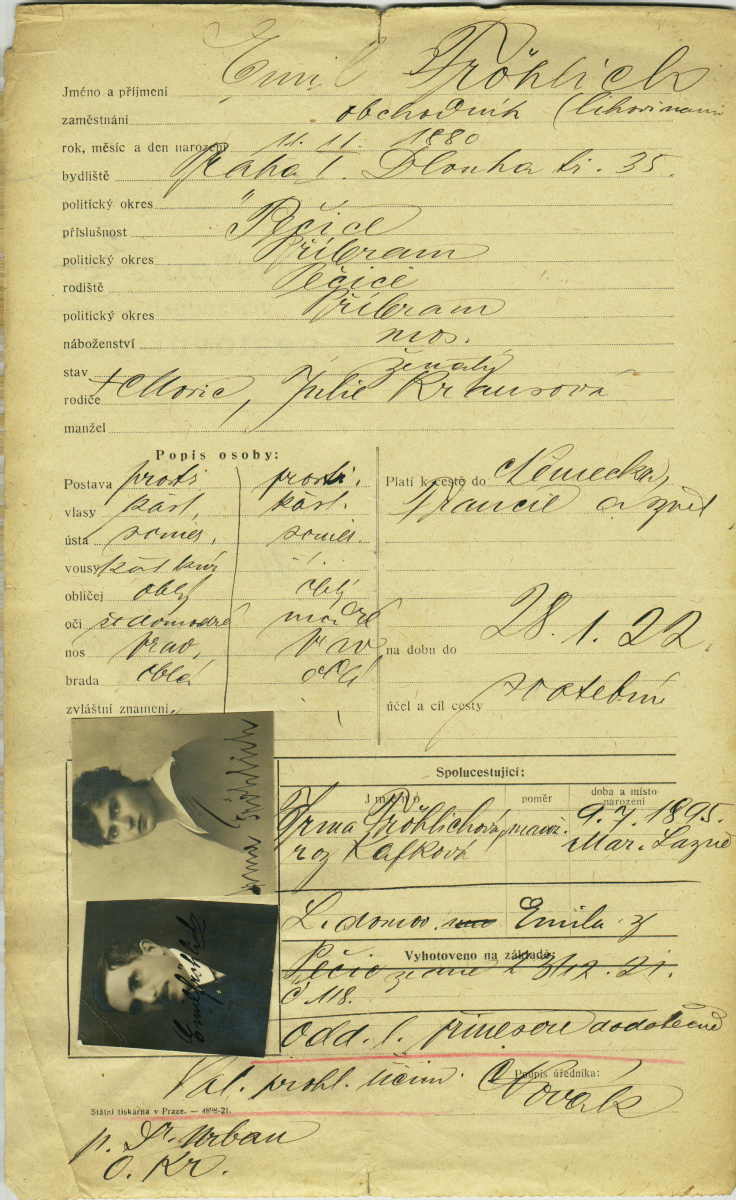 Jméno a příjmení Emil Fröhlich
zaměstnání obchodník (lihovinami
rok, měsíc a den narození 11. 11. 1880
bydliště Praha I. Dlouhá tř. 35.
politický okres "
příslušnost Pečice
politický okres Příbram
rodiště Pečice
politický okres Příbram
náboženství mos.
stav ženatý
rodiče + Moric, Julie Krausová
manžel
Popis osoby:
Postava prostř. prostř.
vlasy kašt. kašt.
ústa souměr. souměr.
vousy
obličej oblý oblý
oči šedomodré modré
nos prav. prav.
brada oblá oblá
zvláštní znamení
Platí k cestě do Německa,
Francie a zpět
na dobu do 28. 1. 22.
účel a cíl cesty svatební
Spolucestující:
Jméno poměr doba a místo
narození
Irma Fröhlichová, manž. 9. 7. 1895.
roz Kafková Mar. Lázně
Irma Fröhlich
Emil Fröhlich
L. domov. Emila z
Vyhotoveno na základě:
Pečic ze dne 21.
č 118.
odd. I. přinesou dodatečně
Val. prohl. učin.
Podpis úředníka:
Novák
Státní tiskárna v Praze. — 4898-21.
p. Dr. Urban
O. Kr.